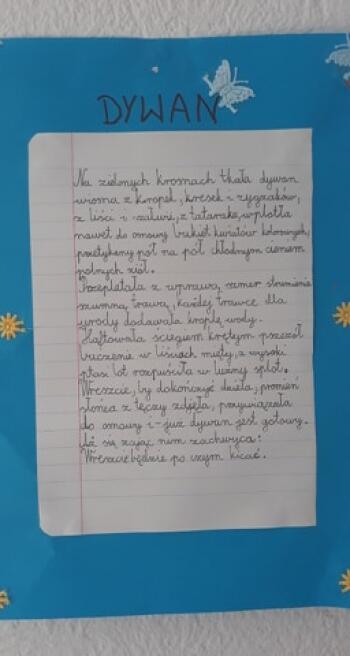 DYWAN
Na zielonych krosnach tkała dywan
wiosna z kropek, kresek i zygzaków,
z liści i z tataraku, wplotła
nawet do osnowy bukiet kwiatów kolorowych,
przetykany pół na pół chłodnym cieniem
polnych ziół.
Przeplatała z wprawą szmer strumienia
szumną trawą, każdej trawce dla
urody dodawała kroplę wody.
Haftowała ściegiem krętym pszczół
buczenie w liściach mięty, z wysoki
ptasi lot rozpuściła w luźny splot.
Wreszcie, by dokończyć dzieła, promień
słońca z tęczy zdjęła, przywiązała
do osnowy i - już dywan jest gotowy.
Aż się zając nim zachwyca:
Wreszcie będzie po czym kicać.